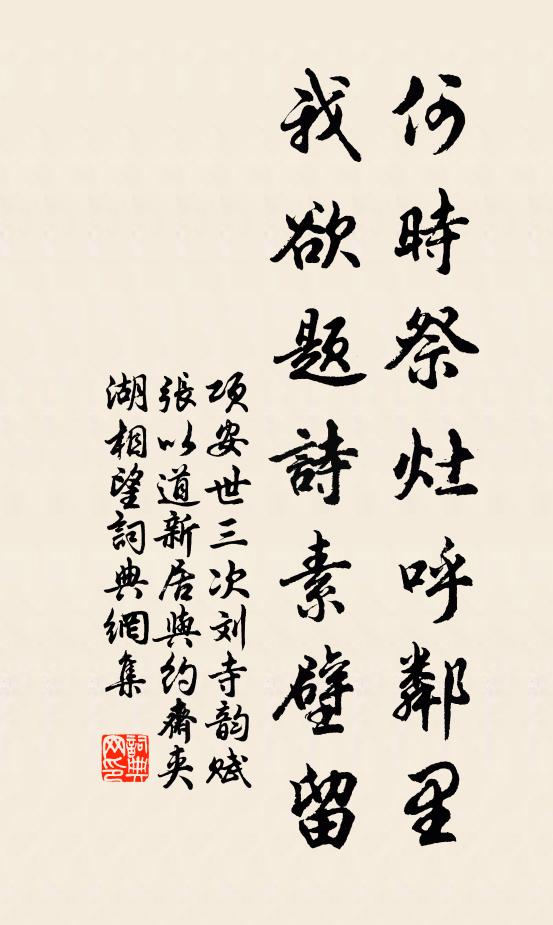 何時祭灶呼鄰里
我欲題詩素壁留
項安世三次刘寺韵赋
張以道新居與約齋夾
湖相望詞典網集
詞典网印